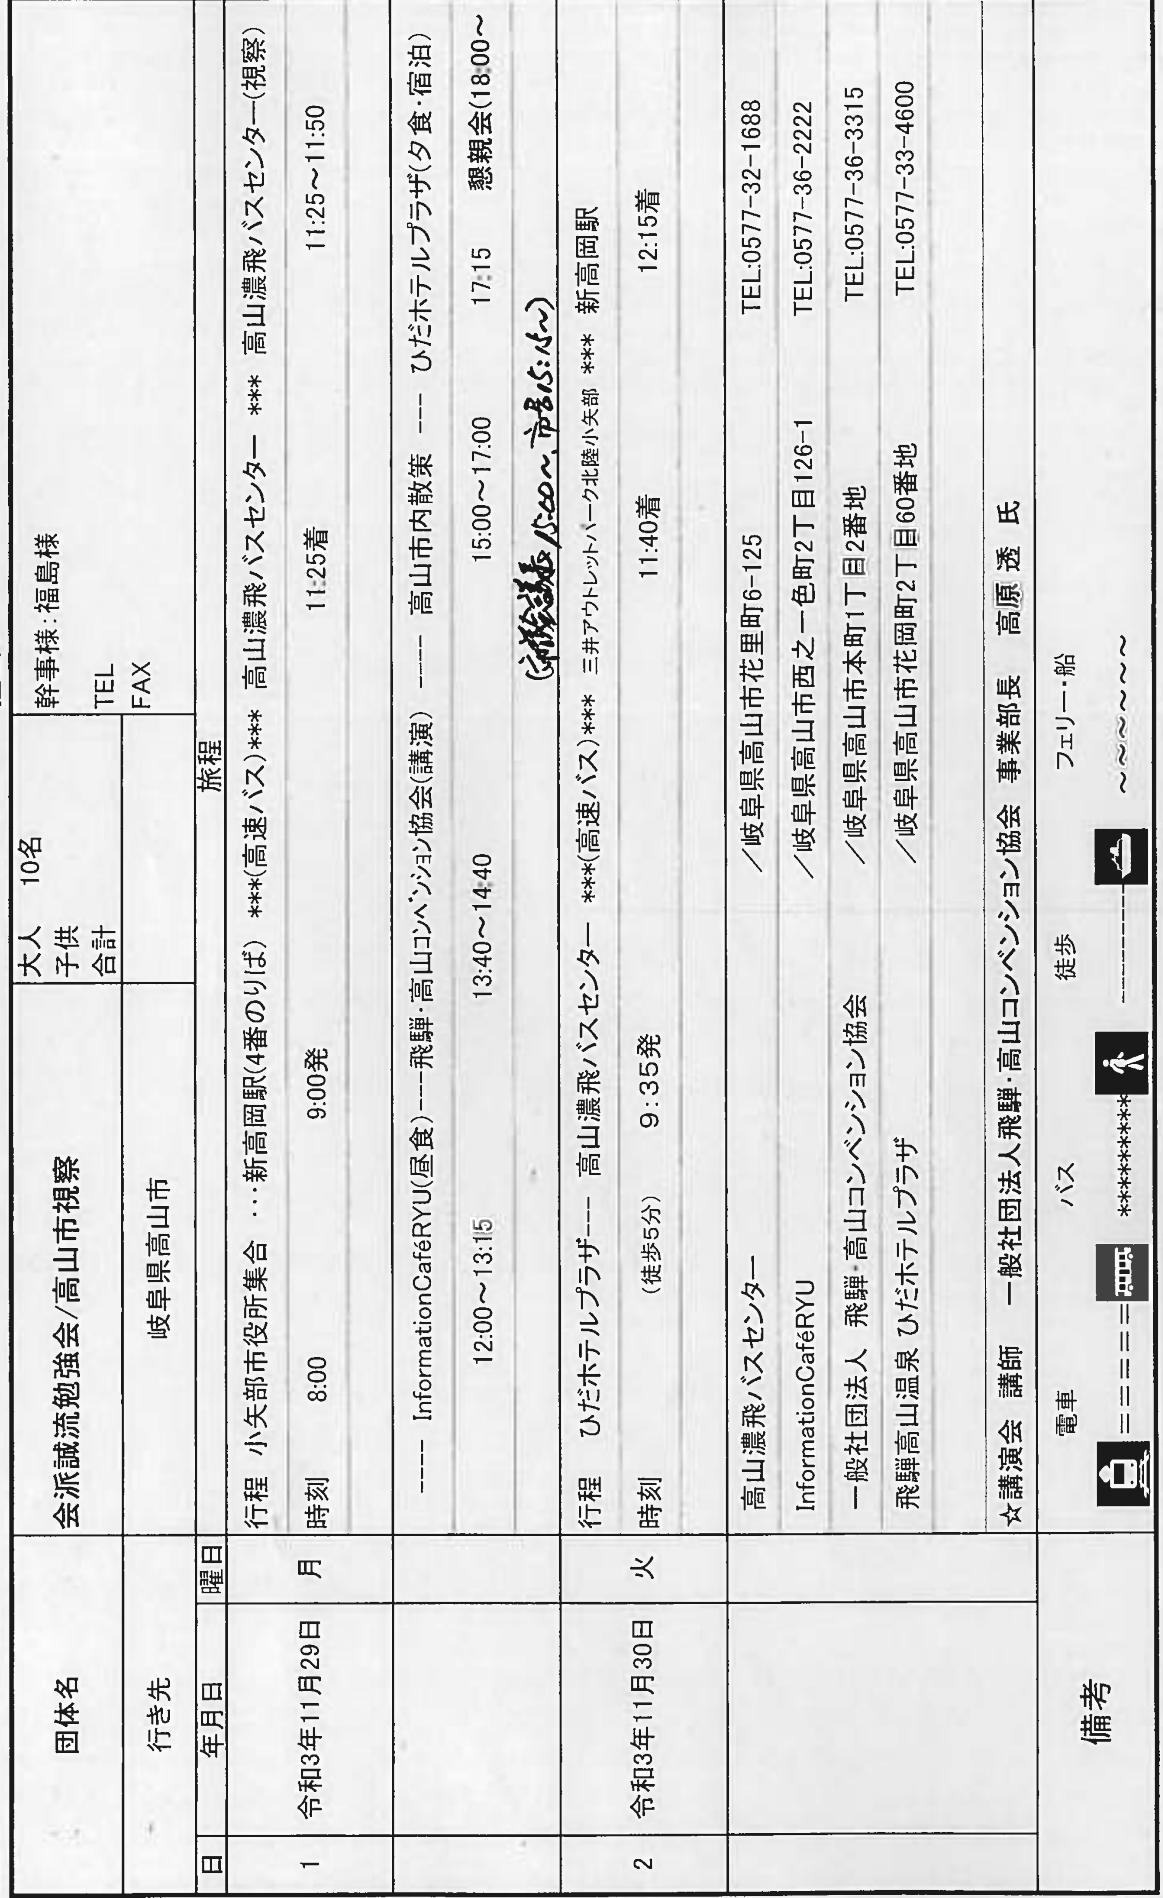 団体名 会派誠流勉強会/高山市視察 大人 10名 幹事様：福島様
子供
合計 TEL
行き先 岐阜県高山市 FAX
日 年月日 曜日 旅程
1 令和3年11月29日 月 行程 小矢部市役所集合 ･･･新高岡駅(4番のりば) ***(高速バス)*** 高山濃飛バスセンター *** 高山濃飛バスセンター(視察)
時刻 8:00 9:00発 11:25着 11:25～11:50
---- InformationCaféRYU(昼食)---飛騨･高山コンベンション協会(講演) ---- 高山市内散策 --- ひだホテルプラザ(夕食･宿泊)
12:00～13:15 13:40～14:40 15:00～17:00 17:15 懇親会(18:00～
15:00～、市長15:15～)
2 令和3年11月30日 火 行程 ひだホテルプラザ--- 高山濃飛バスセンター ***(高速バス)*** 三井アウトレットパーク北陸小矢部 *** 新高岡駅
時刻 (徒歩5分) 9:35発 11:40着 12:15着
高山濃飛バスセンター ／岐阜県高山市花里町6-125 TEL:0577-32-1688
InformationCaféRYU ／岐阜県高山市西之一色町2丁目126-1 TEL:0577-36-2222
一般社団法人 飛騨･高山コンベンション協会 ／岐阜県高山市本町1丁目2番地 TEL:0577-36-3315
飛騨高山温泉 ひだホテルプラザ ／岐阜県高山市花岡町2丁目60番地 TEL:0577-33-4600
☆講演会 講師 一般社団法人飛騨･高山コンベンション協会 事業部長 高原 透 氏
備考 電車 バス 徒歩 フェリー･船
====== ********* --------- ～～～～～～